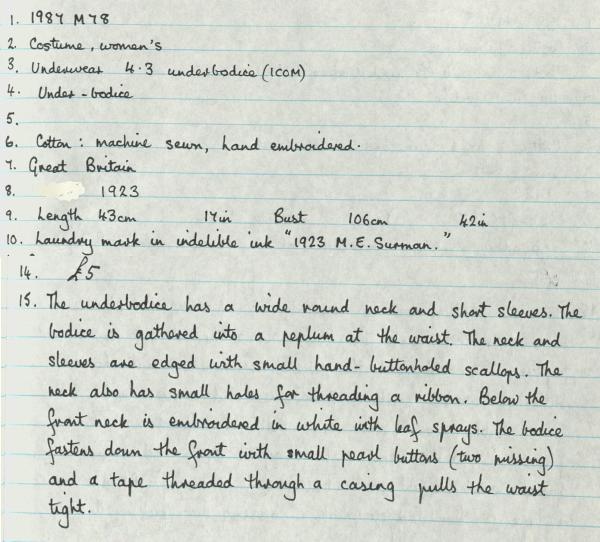 1. 1987 M78
2. Costume, women's
3. Underwear 4.3 underbodice (ICOM)
4. Under-bodice
5.
6. Cotton: machine sewn, hand embroidered.
7. Great Britain
8. 1923
9. Length 43cm 17in Bust 106cm 42in
10. Laundry mark in indelible ink "1923 M.E. Surman."
14. £5
15. The underbodice has a wide round neck and short sleeves. The
bodice is gathered into a peplum at the waist. The neck and
sleeves are edged with small hand-buttonholed scallops. The
neck also has small holes for threading a ribbon. Below the
front neck is embroidered in white with leaf sprays. The bodice
fastens down the front with small pearl buttons (two missing)
and a tape threaded through a casing pulls the waist
tight.